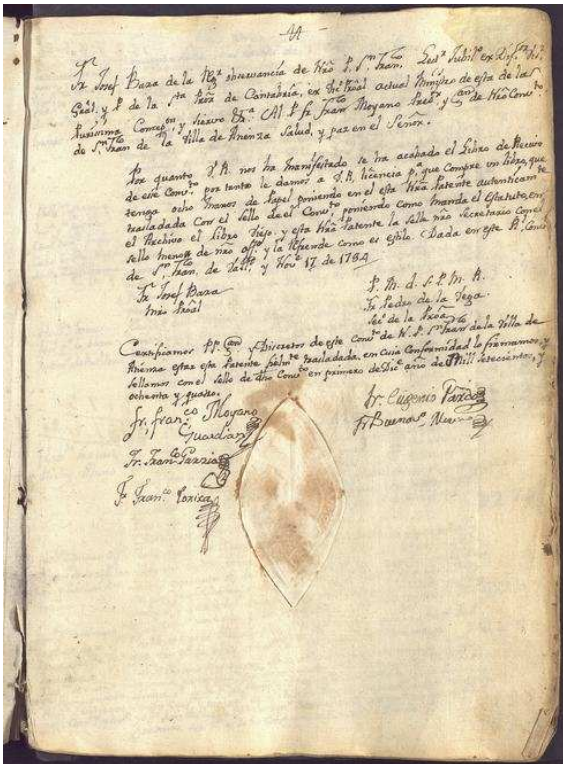 Fr. Josef Baza de la Regr observancia de Nro P. Sn Fran.co Lect.r Jubil.o ex Dif.or
Gral, y P. de la Sta Prov.a de Cantabria, ex Actual Ministro de esta de la
Purisima Concep.on y siervo &.a Al P. Fr. Fran.co Moyano Pred.or y Gn de Nro Conv.to
de Sn Fran.co de la Villa de Atienza Salud, y paz en el Señor.
Por quanto V.R. nos ha manifestado se ha acabado el Libro de Recivo
de ese Conv.to por tanto le damos a V.R. licencia p.a que Compre un libro, que
tenga ocho manos de Papel poniendo en el esta Nra Patente autenticam.te
trasladada Con el Sello de el Conv.to, poniendo como manda el Estatuto, en
el Archivo el Libro Viejo, y esta Nra Patente la Selle nro Secretario Con el
Sello menor de nro offo, y la Refrende como es estilo. Dada en este Rl Conv.to
de Sn Fran.co de Vall.d y Nov.e 17 de 1784
Fr. Josef Baza
Mro Pral
P. M. d. S. P. M. R.
Fr. Pedro de la Vega
Sec.o de la Prov.a
Certificamos PP. Gn y Discretos de este Conv.to de N. P. Sn Fran.co de la Villa de
Atienza estar esta Patente fielm.te trasladada, en cuia Conformidad lo firmamos, y
sellamos con el Sello de dho Conv.to en primero de Dic.e año de Mill setecientos, y
ochenta y quatro.
Fr. Fran.co Moyano
Guardian
Fr. Eugenio Pardo
Fr. Buenav.a
Fr. Fran.co
Fr. Fran.co